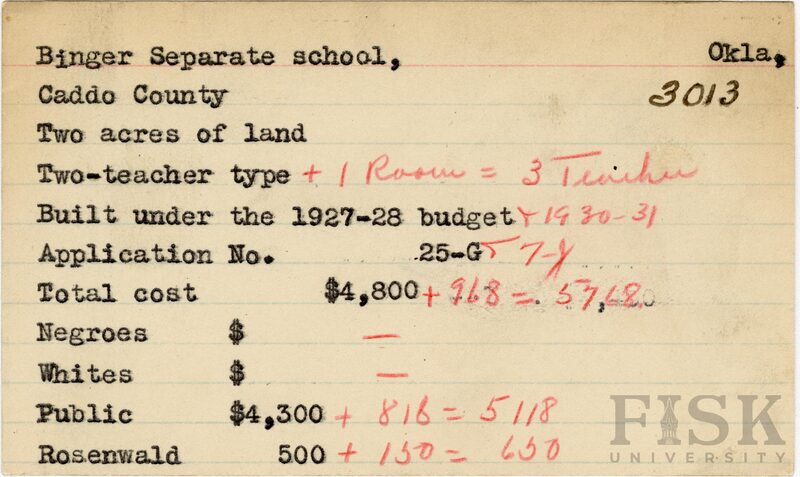 Binger Separate school, Okla,
Caddo County 3013
Two acres of land
Two-teacher type + 1 Room = 3 Teacher
Built under the 1927-28 budget + 1930-31
Application No. 25-G + 7-J
Total cost $4,800 + 968 = 5768
Negroes $ —
Whites $ —
Public $4,300 + 818 = 5118
Rosenwald 500 + 150 = 650
FISK
UNIVERSITY